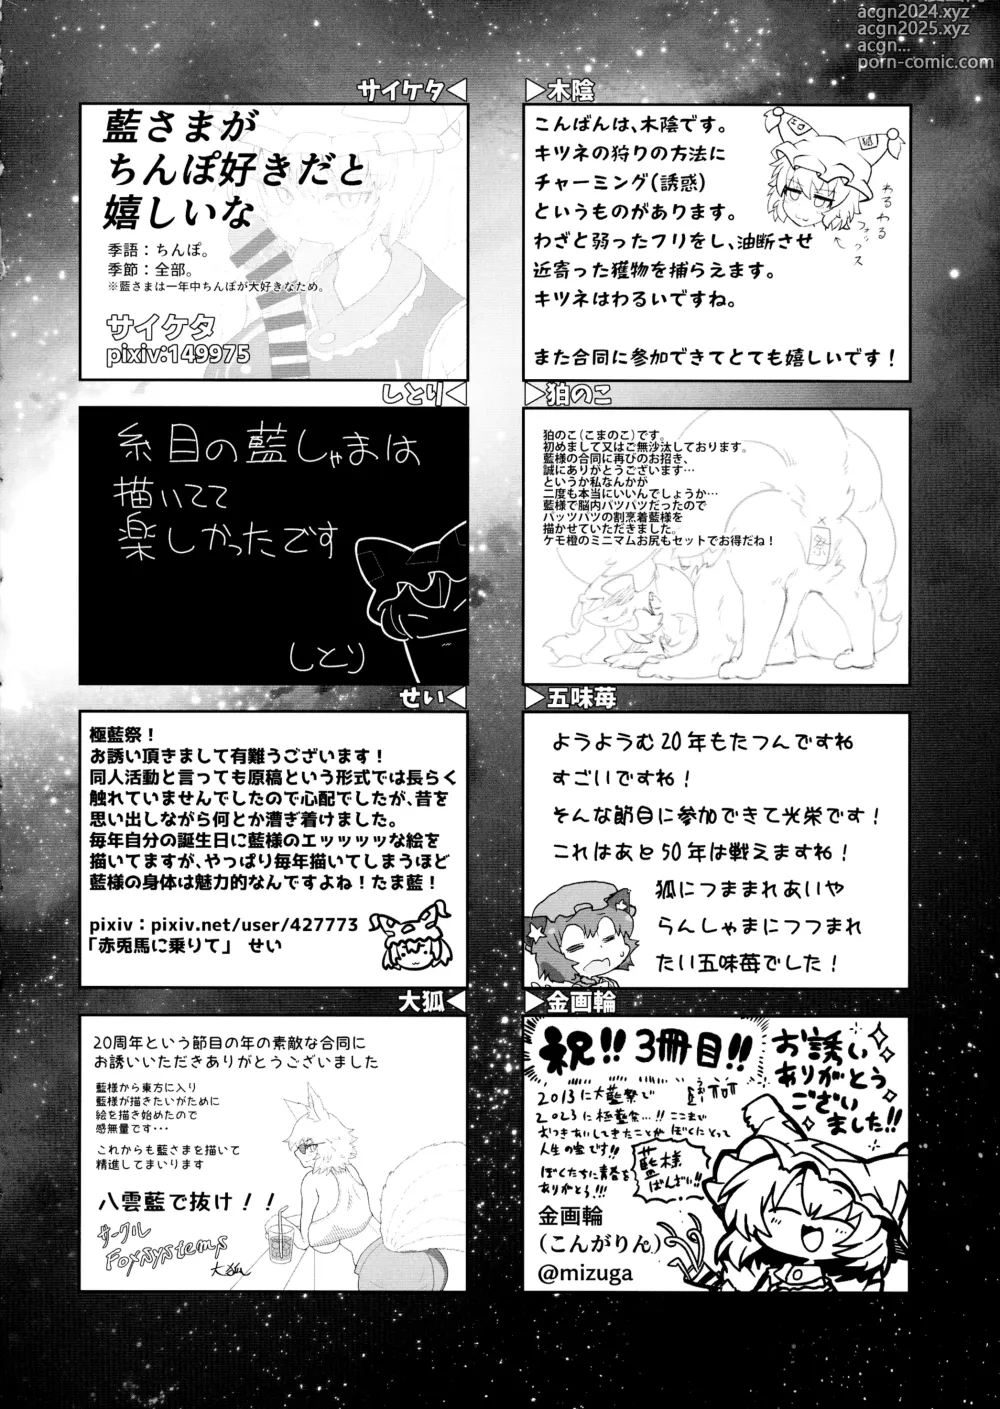 acgn2024.xyz
acgn2025.xyz
acgn...
porn-comic.com
サイケタ
藍さまが
ちんぽ好きだと
嬉しいな
季語：ちんぽ。
季節：全部。
※藍さまは一年中ちんぽが大好きなため。
サイケタ
pixiv:149975
木陰
こんばんは、木陰です。
キツネの狩りの方法に
チャーミング(誘惑)
というものがあります。
わざと弱ったフリをし、油断させ
近寄った獲物を捕らえます。
キツネはわるいですね。
また合同に参加できてとても嬉しいです！
わるわる
フォックス
しとり
糸目の藍しゃまは
描いてて
楽しかったです
しとり
狛のこ
狛のこ(こまのこ)です。
初めまして又はご無沙汰しております。
藍様の合同に再びのお招き、
誠にありがとうございます…
というか私なんかが
二度も本当にいいんでしょうか…
藍様で脳内パツパツだったので
パッツパツの割烹着藍様を
描かせていただきました。
ケモ橙のミニマムお尻もセットでお得だね！
祭
せい
極藍祭！
お誘い頂きまして有難うございます！
同人活動と言っても原稿という形式では長らく
触れていませんでしたので心配でしたが、昔を
思い出しながら何とか漕ぎ着けました。
毎年自分の誕生日に藍様のエッッッッな絵を
描いてますが、やっぱり毎年描いてしまうほど
藍様の身体は魅力的なんですよね！たま藍！
pixiv：pixiv.net/user/427773
「赤兎馬に乗りて」　せい
五味苺
ようようむ20年もたつんですね
すごいですね！
そんな節目に参加できて光栄です！
これはあと50年は戦えますね！
狐につままれあいや
らんしゃまにつつまれ
たい五味苺でした！
大狐
20周年という節目の年の素敵な合同に
お誘いいただきありがとうございました
藍様から東方に入り
藍様が描きたいがために
絵を描き始めたので
感無量です…
これからも藍さまを描いて
精進してまいります
八雲藍で抜け！！
サークル
Foxsystems
大狐
金画輪
祝!! 3冊目!!
お誘い
ありがとう
ござい
ました!!
2013に大藍祭で
2023に極藍祭…!! ここまで
おつきあいしてきたことが ぼくにとって
人生の宝です!!
ぼくたちに青春を
ありがとう!!!
藍様
ばんざい!!
金画輪
(こんがりん)
@mizuga